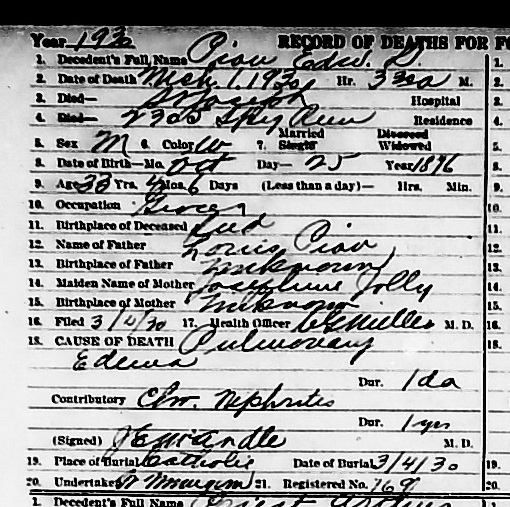 Year 1930 RECORD OF DEATHS FOR FO
1. Decedent's Full Name Pion Edw. G 1.
2. Date of Death Mch. 1, 1930 Hr. 3 30 a M. 2.
3. Died— St Joseph Hospital 3.
4. Died— 2305 Spy Run Residence 4.
5. Sex M 6. Color W 7. Married Single Divorced Widowed 5.
8. Date of Birth—Mo. Oct Day— 25 Year 1896 8.
9. Age 33 Yrs. 4 Mos. 6 Days (Less than a day)— Hrs. Min. 9.
10. Occupation Grocer 10.
11. Birthplace of Deceased Ind 11.
12. Name of Father Louis Pion 12.
13. Birthplace of Father Unknown 13.
14. Maiden Name of Mother Josephine Jolly 14.
15. Birthplace of Mother Unknown 15.
16. Filed 3/4/30 17. Health Officer Miller M. D. 16.
18. CAUSE OF DEATH Pulmonary 18.
Edema
Dur. 1 da
Contributory Chr. Nephritis
Dur. 1 yr
(Signed) M. D.
19. Place of Burial Catholic Date of Burial 3/4/30 19.
20. Undertaker 21. Registered No. 169 20.
1. Decedent's Full Name 1.